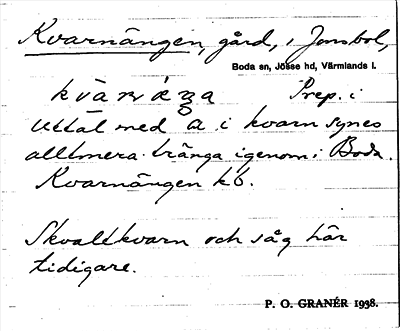 Kvarnängen, gård, i Jonsbol,
Boda sn, Jösse hd, Värmlands l.
Prep. i
Uttal med a i kvarn synes
alltmera tränga igenom i Boda.
Kvarnängen kö.
Skvaltkvarn och såg här
tidigare.
P. O. GRANÉR 1938.